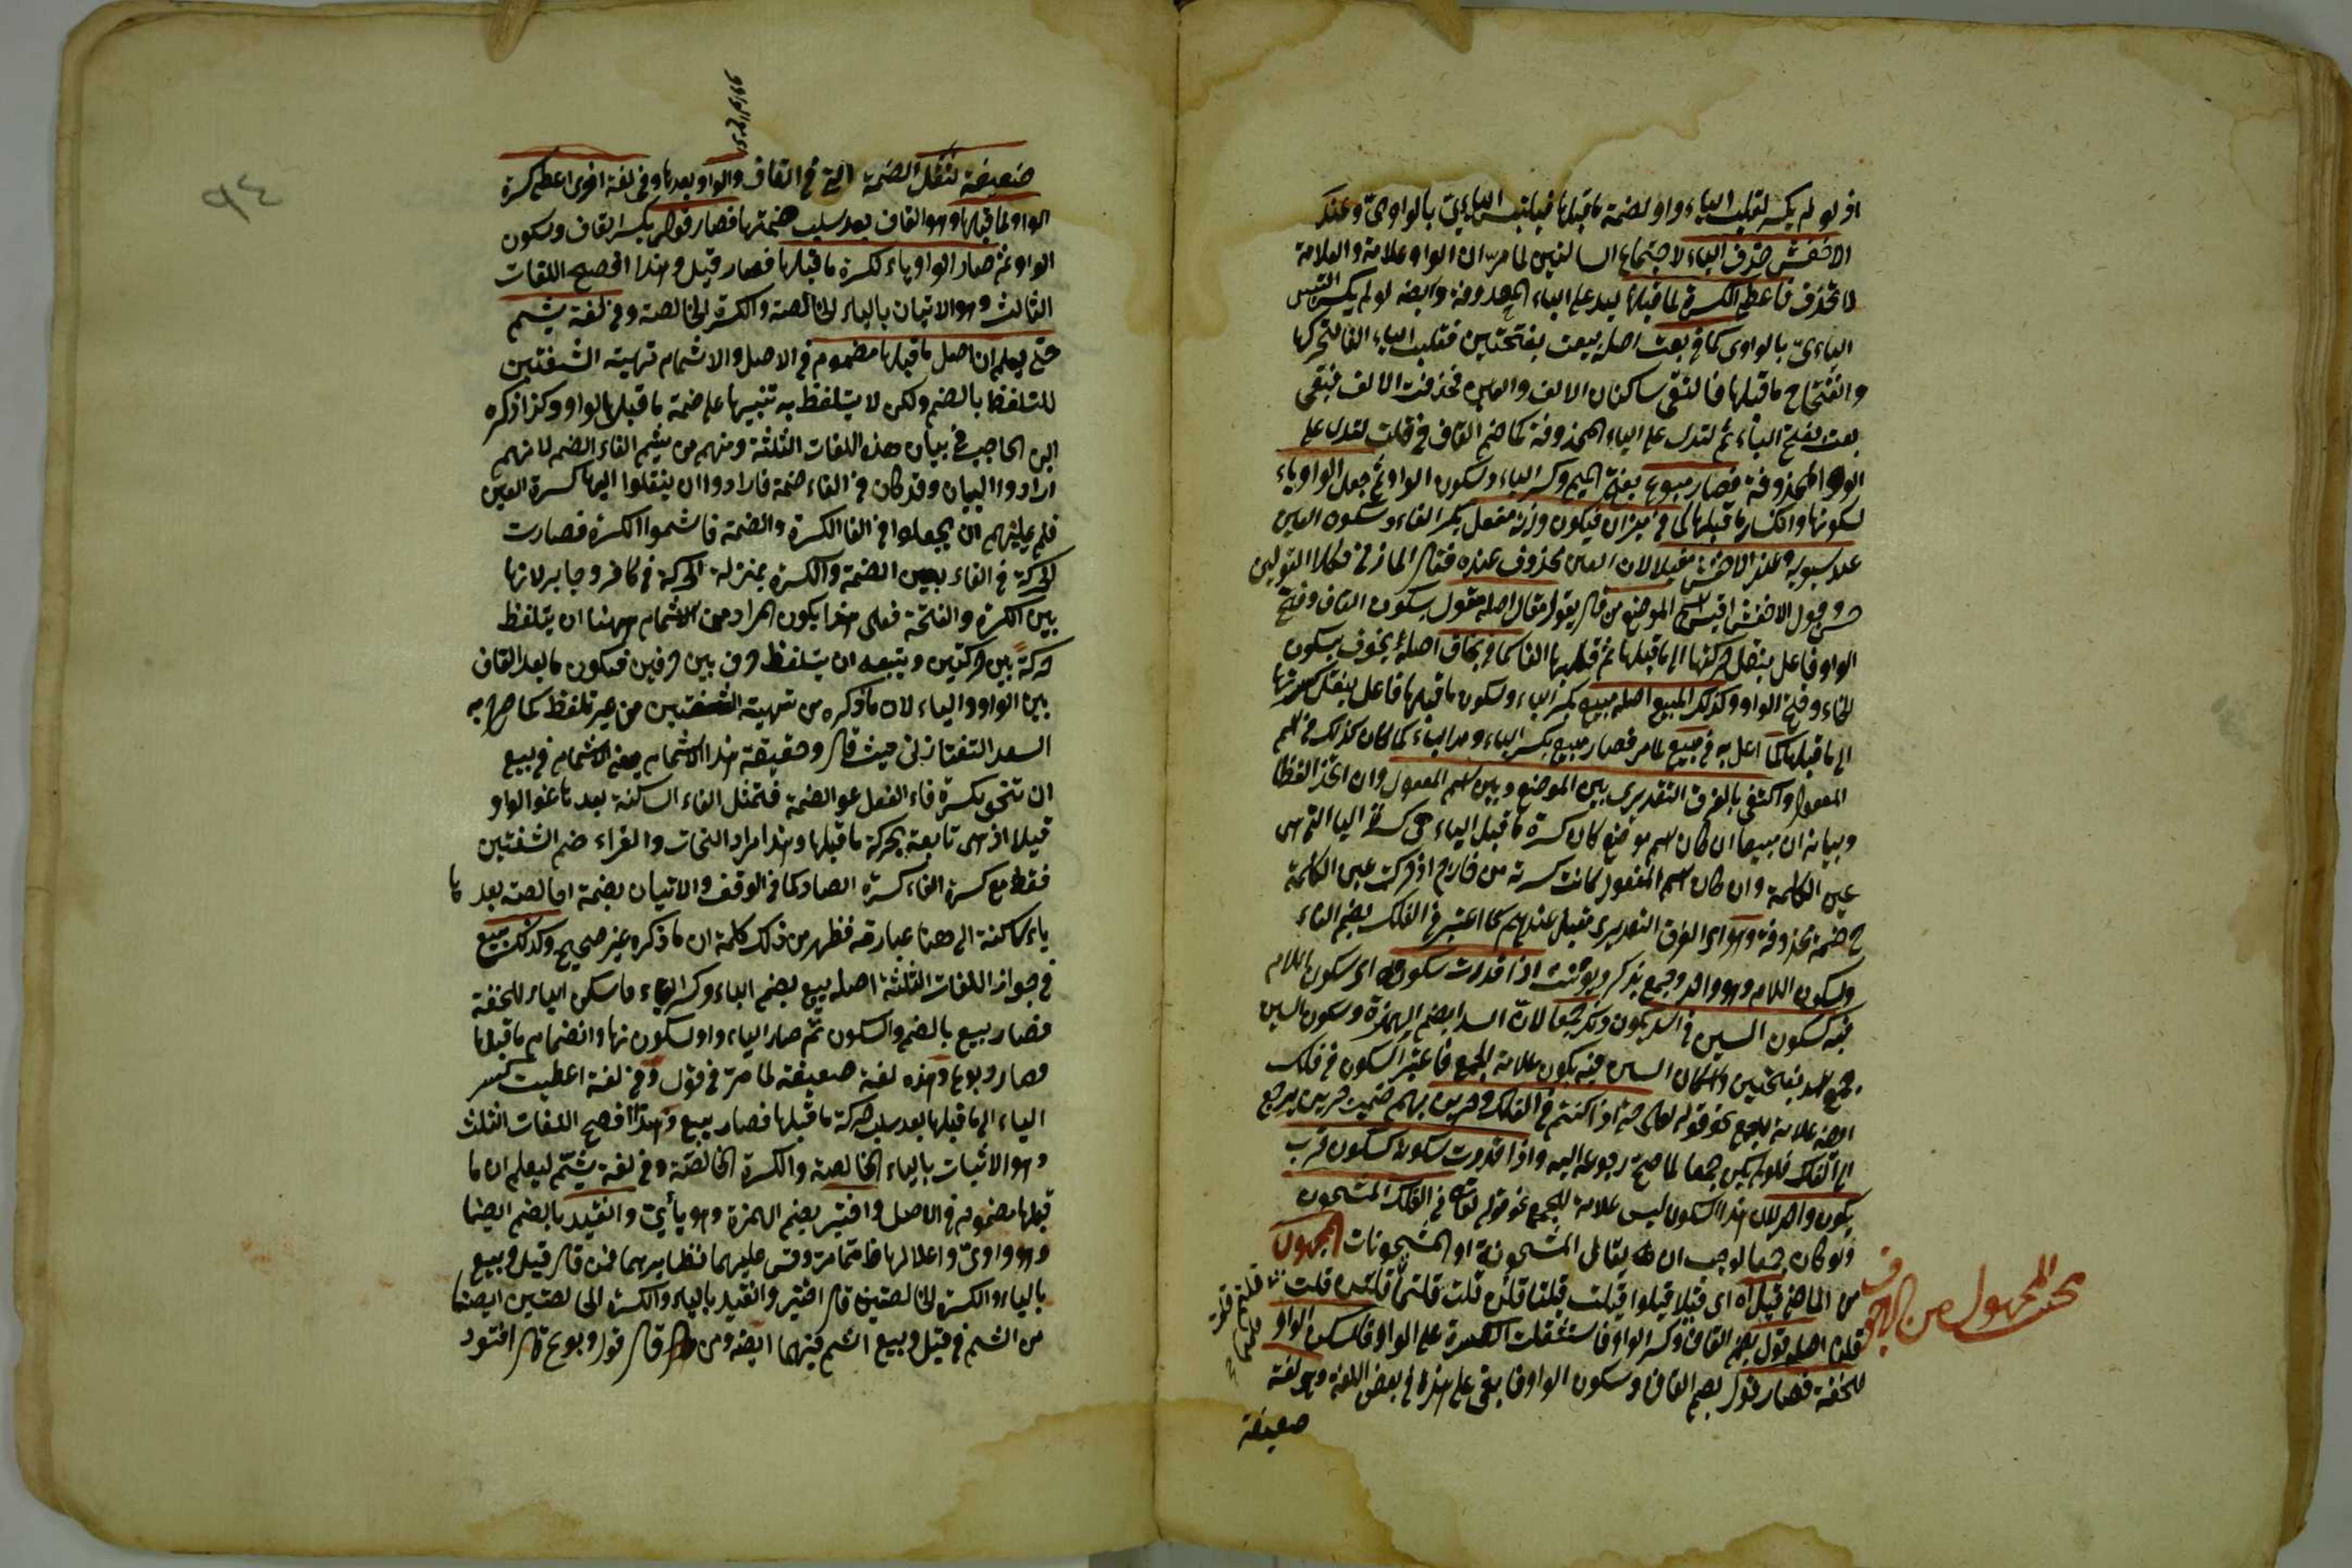 اذ لو لم يكسر لقلبت الياء واوا لضمة ما قبلها فيلتبس اليائي بالواوي وعند
الاخفش حذف الياء لاجتماع الساكنين لما مر ان الواو علامة والعلامة
لا تحذف فاعطي الكسرة لما قبلها ليدل على الياء المحذوفة وايضا لو لم يكسر التبس
اليائي بالواوي كما في بعت اصله بيعت بفتحتين فقلبت الياء الفا لتحركها
وانفتاح ما قبلها فالتقى ساكنان الالف والعين فحذفت الالف فبقي
بعت بفتح الباء ثم لتدل على الياء المحذوفة كما ضم القاف في قلت لتدل على
الواو المحذوفة فصار مبوع بفتح الميم وكسر الباء وسكون الواو ثم جعل الواو ياء
لسكونها وانكسار ما قبلها كما في ميزان فيكون وزنه مفعل بكسر الفاء وسكون العين
عند سيبويه وعند الاخفش مفيلا لان العين محذوف عنده فقال المازني فكلا القولين
حسن وقول الاخفش اقيس الموضع من قال يقول مقال اصله مقول بسكون القاف وفتح
الواو فاعل بنقل حركتها الى ما قبلها ثم قلبها الفا كما في يخاف اصله يخوف بسكون
الخاء وفتح الواو وكذلك المبيع اصله مبيع بكسر الياء وسكون ما قبلها فاعل بنقل كسرتها
الى ما قبلها كما اعل به في مبيع لما مر فصار مبيع بكسر الباء ومد الياء كما كان كذلك في اسم
المفعول واكتفي بالفرق التقديري بين الموضع وبين اسم المفعول وان اتحد الفظا
وبيانه ان مبيعا ان كان اسم موضع كان كسرة ما قبل الياء هي كسرة اليا التي هي
عين الكلمة وان كان اسم المفعول كانت كسرته من خارج اذ حركت عين الكلمة
ح ضمة محذوفة وهو اي الفرق التقديري مقبل عندهم كما اعتبر في الفلك بضم الفاء
وسكون اللام وهو واحد وجمع يذكر ويؤنث اذا قدرت سكونه اي سكون اللام
فيه كسكون السين في اسد يكون ذلك جمعا لان اسدا بضم الهمزة وسكون السين
جمع اسد بفتحتين واسكان السين فيه يكون علامة الجمع فاعتبر السكون في فلك
ايضا علامة للجمع نحو قوله تعالى حتى اذا كنتم في الفلك وجرين بهم ضمير جرين يرجع
الى الفلك فلو لم يكن جمعا لما صح رجوعه اليه واذا قدرت سكونه كسكون قرب
يكون واحدا لان هذا السكون ليس علامة للجمع نحو قوله تعالى في الفلك المشحون
ولو كان جمعا لوجب ان يقال المشحونة او المشحونات المجهول
من الماضي قيل اه اي قيلا قيلوا قيلت قيلتا قلن قلت قلتما قلتم قلت
قلنا اصله قول بضم القاف وكسر الواو فاستثقلت الكسرة على الواو فاسكن الواو
للخفة فصار قول بضم القاف وسكون الواو فابقي على هذا في بعض اللغة وهو لغة
ضعيفة
بحث المجهول من الاجوف
ضعيفة لثقل الضمة التي في القاف والواو بعدها وفي لغة اخرى اعطي كسرة
الواو لما قبلها وهو القاف بعد سلب ضمتها فصار قول بكسر القاف وسكون
الواو ثم صار الواو ياء لكسرة ما قبلها فصار قيل وهذا افصح اللغات
الثالث وهو الاتيان بالياء الخالصة والكسرة الخالصة وفي لغة يشم
حتى يعلم ان اصل ما قبلها مضموم في الاصل والاشمام تهيئة الشفتين
للتلفظ بالضم ولكن لا يتلفظ به تنبيها على ضمة ما قبلها لواو وكذا ذكره
ابن الحاجب في بيان هذه اللغات الثلثة ومنهم من يشم الفاء الضم لانهم
ارادوا البيان وقد كان في الفاء ضمة فارادوا ان ينقلوا اليها كسرة العين
فلم يمكنهم ان يجعلوا في الفا الكسرة والضمة فاشموا الكسرة فصارت
الحركة في الفاء بين الضمة والكسرة بمنزلة الحركة في كافر وجابر لانها
بين الكسرة والفتحة فعلى هذا يكون المراد من الاشمام ههنا ان يتلفظ
حركة بين حركتين ويتبعه ان يتلفظ حرف بين حرفين فيكون ما بعد القاف
بين الواو والياء لان ما ذكره من تهيئة الشفتين من غير تلفظ كما صرح به
السعد التفتازاني حيث قال وحقيقة هذا الاشمام يعني الاشمام في بيع
ان تنحو بكسرة فاء الفعل نحو الضمة فتميل الياء الساكنة بعدها نحو الواو
قيلا اذ هي تابعة لحركة ما قبلها وهذا مراد النحات والقراء ضم الشفتين
فقط مع كسرة الفاء كسرة الصاد كما في الوقف والاتيان بضمة خالصة بعدها
ياء ساكنة الى هنا عبارته فظهر من ذلك كلمة ان ما ذكره غير صحيح وكذلك بيع
في جواز اللغات الثلثة اصله بيع بضم الباء وكسر الياء فاسكن الياء للخفة
فصار بيع بالضم والسكون ثم صار الياء واوا لسكونها وانضمام ما قبلها
وصار وبوع وهذه لغة ضعيفة لما مر في قول وفي لغة اعطيت كسر
الياء الى ما قبلها بعد سلب حركة ما قبلها فصار بيع وهذا افصح اللغات الثلث
وهو الاثبات بالياء الخالصة والكسرة الخالصة وفي لغة يشم ليعلم ان ما
قبلها مضموم في الاصل واختير بضم الهمزة وهو يائي وانقيد بالضم ايضا
وهو واوي واعلالهما وقس عليهما نظايرهما فمن قال قيل وبيع
بالياء والكسرة الخالصتين قال اختير وانقيد بالياء والكسرة الخالصتين ايضا
من اشم في قيل وبيع اشم فيهما ايضا ومن قال قول وبوع قال اختور
٩٤